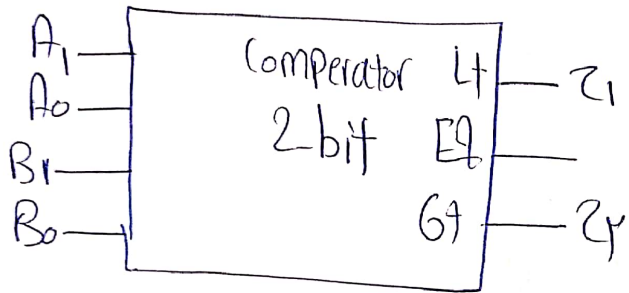 A1
A0
B1
B0
Comperator
2 bit
Lt
EQ
Gt
Z1
Z۲